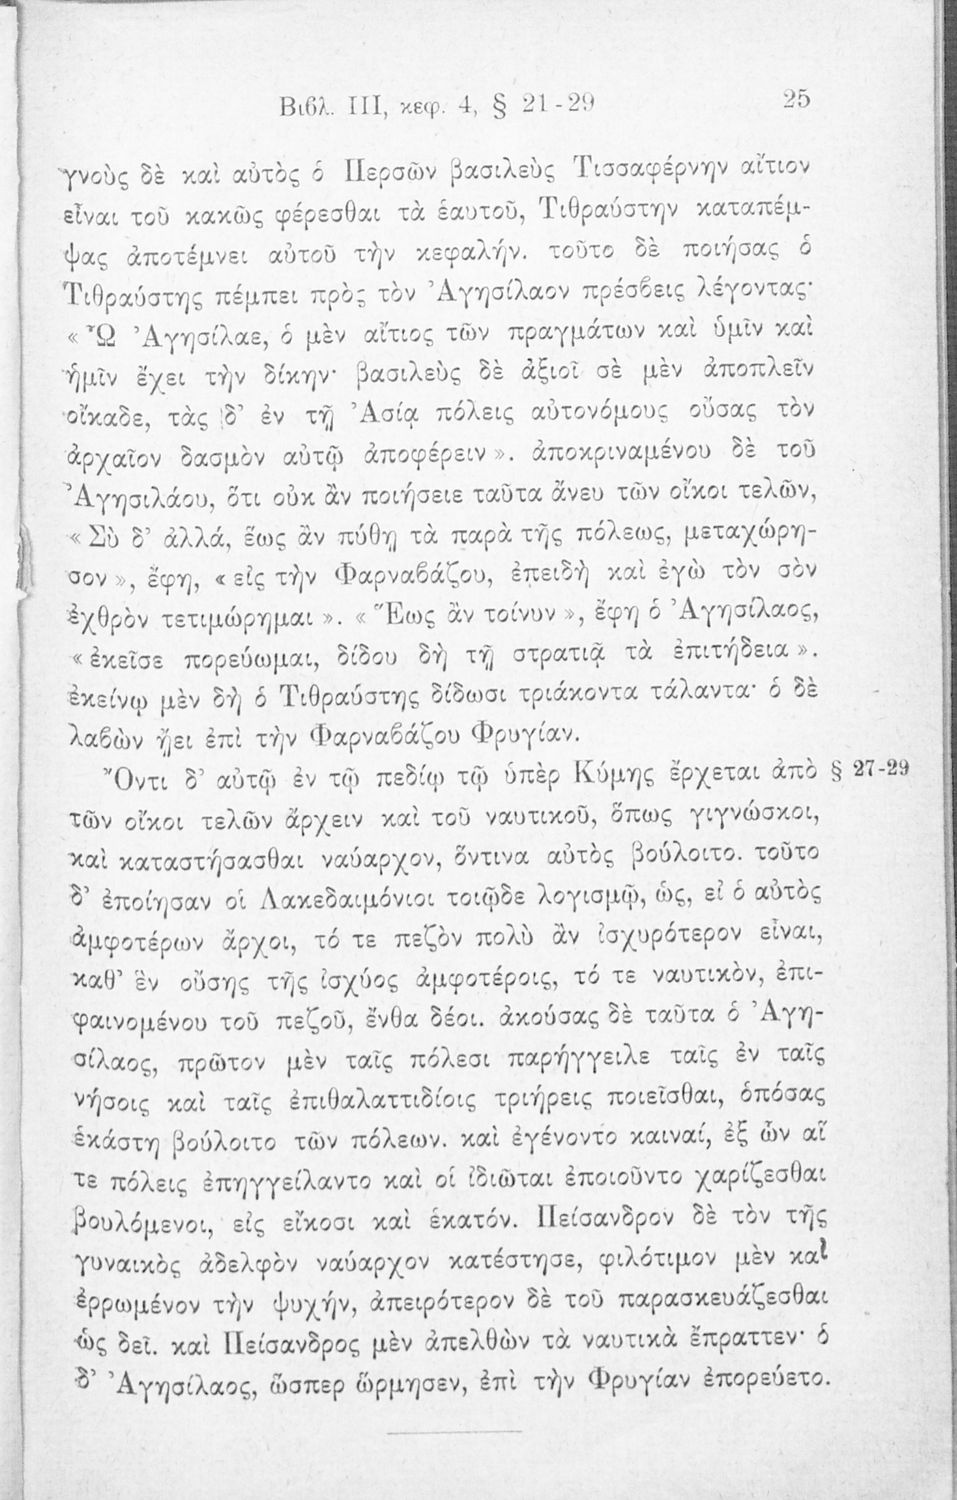 Βιβλ. III, κεφ. 4, § 21-29 25
γνοὺς δὲ καὶ αὐτὸς ὁ Περσῶν βασιλεὺς Τισσαφέρνην αἴτιον
εἶναι τοῦ κακῶς φέρεσθαι τὰ ἑαυτοῦ, Τιθραύστην καταπέμ-
ψας ἀποτέμνει αὐτοῦ τὴν κεφαλήν. τοῦτο δὲ ποιήσας ὁ
Τιθραύστης πέμπει πρὸς τὸν Ἀγησίλαον πρέσβεις λέγοντας·
« Ὦ Ἀγησίλαε, ὁ μὲν αἴτιος τῶν πραγμάτων καὶ ὑμῖν καὶ
ἡμῖν ἔχει τὴν δίκην· βασιλεὺς δὲ ἀξιοῖ σὲ μὲν ἀποπλεῖν
οἴκαδε, τὰς δ' ἐν τῇ Ἀσίᾳ πόλεις αὐτονόμους οὔσας τὸν
ἀρχαῖον δασμὸν αὐτῷ ἀποφέρειν ». ἀποκριναμένου δὲ τοῦ
Ἀγησιλάου, ὅτι οὐκ ἂν ποιήσειε ταῦτα ἄνευ τῶν οἴκοι τελῶν,
« Σὺ δ' ἀλλά, ἕως ἂν πύθῃ τὰ παρὰ τῆς πόλεως, μεταχώρη-
σον », ἔφη, « εἰς τὴν Φαρναβάζου, ἐπειδὴ καὶ ἐγὼ τὸν σὸν
ἐχθρὸν τετιμώρημαι ». « Ἕως ἂν τοίνυν », ἔφη ὁ Ἀγησίλαος,
« ἐκεῖσε πορεύωμαι, δίδου δὴ τῇ στρατιᾷ τὰ ἐπιτήδεια ».
ἐκείνῳ μὲν δὴ ὁ Τιθραύστης δίδωσι τριάκοντα τάλαντα· ὁ δὲ
λαβὼν ᾔει ἐπὶ τὴν Φαρναβάζου Φρυγίαν.
Ὄντι δ' αὐτῷ ἐν τῷ πεδίῳ τῷ ὑπὲρ Κύμης ἔρχεται ἀπὸ § 27-29
τῶν οἴκοι τελῶν ἄρχειν καὶ τοῦ ναυτικοῦ, ὅπως γιγνώσκοι,
καὶ καταστήσασθαι ναύαρχον, ὅντινα αὐτὸς βούλοιτο. τοῦτο
δ' ἐποίησαν οἱ Λακεδαιμόνιοι τοιῷδε λογισμῷ, ὡς, εἰ ὁ αὐτὸς
ἀμφοτέρων ἄρχοι, τό τε πεζὸν πολὺ ἂν ἰσχυρότερον εἶναι,
καθ' ἓν οὔσης τῆς ἰσχύος ἀμφοτέροις, τό τε ναυτικὸν, ἐπι-
φαινομένου τοῦ πεζοῦ, ἔνθα δέοι. ἀκούσας δὲ ταῦτα ὁ Ἀγη-
σίλαος, πρῶτον μὲν ταῖς πόλεσι παρήγγειλε ταῖς ἐν ταῖς
νήσοις καὶ ταῖς ἐπιθαλαττιδίοις τριήρεις ποιεῖσθαι, ὁπόσας
ἑκάστη βούλοιτο τῶν πόλεων. καὶ ἐγένοντο καιναί, ἐξ ὧν αἵ
τε πόλεις ἐπηγγείλαντο καὶ οἱ ἰδιῶται ἐποιοῦντο χαρίζεσθαι
βουλόμενοι, εἰς εἴκοσι καὶ ἑκατόν. Πείσανδρον δὲ τὸν τῆς
γυναικὸς ἀδελφὸν ναύαρχον κατέστησε, φιλότιμον μὲν καὶ
ἐρρωμένον τὴν ψυχήν, ἀπειρότερον δὲ τοῦ παρασκευάζεσθαι
ὡς δεῖ. καὶ Πείσανδρος μὲν ἀπελθὼν τὰ ναυτικὰ ἔπραττεν· ὁ
δ' Ἀγησίλαος, ὥσπερ ὥρμησεν, ἐπὶ τὴν Φρυγίαν ἐπορεύετο.